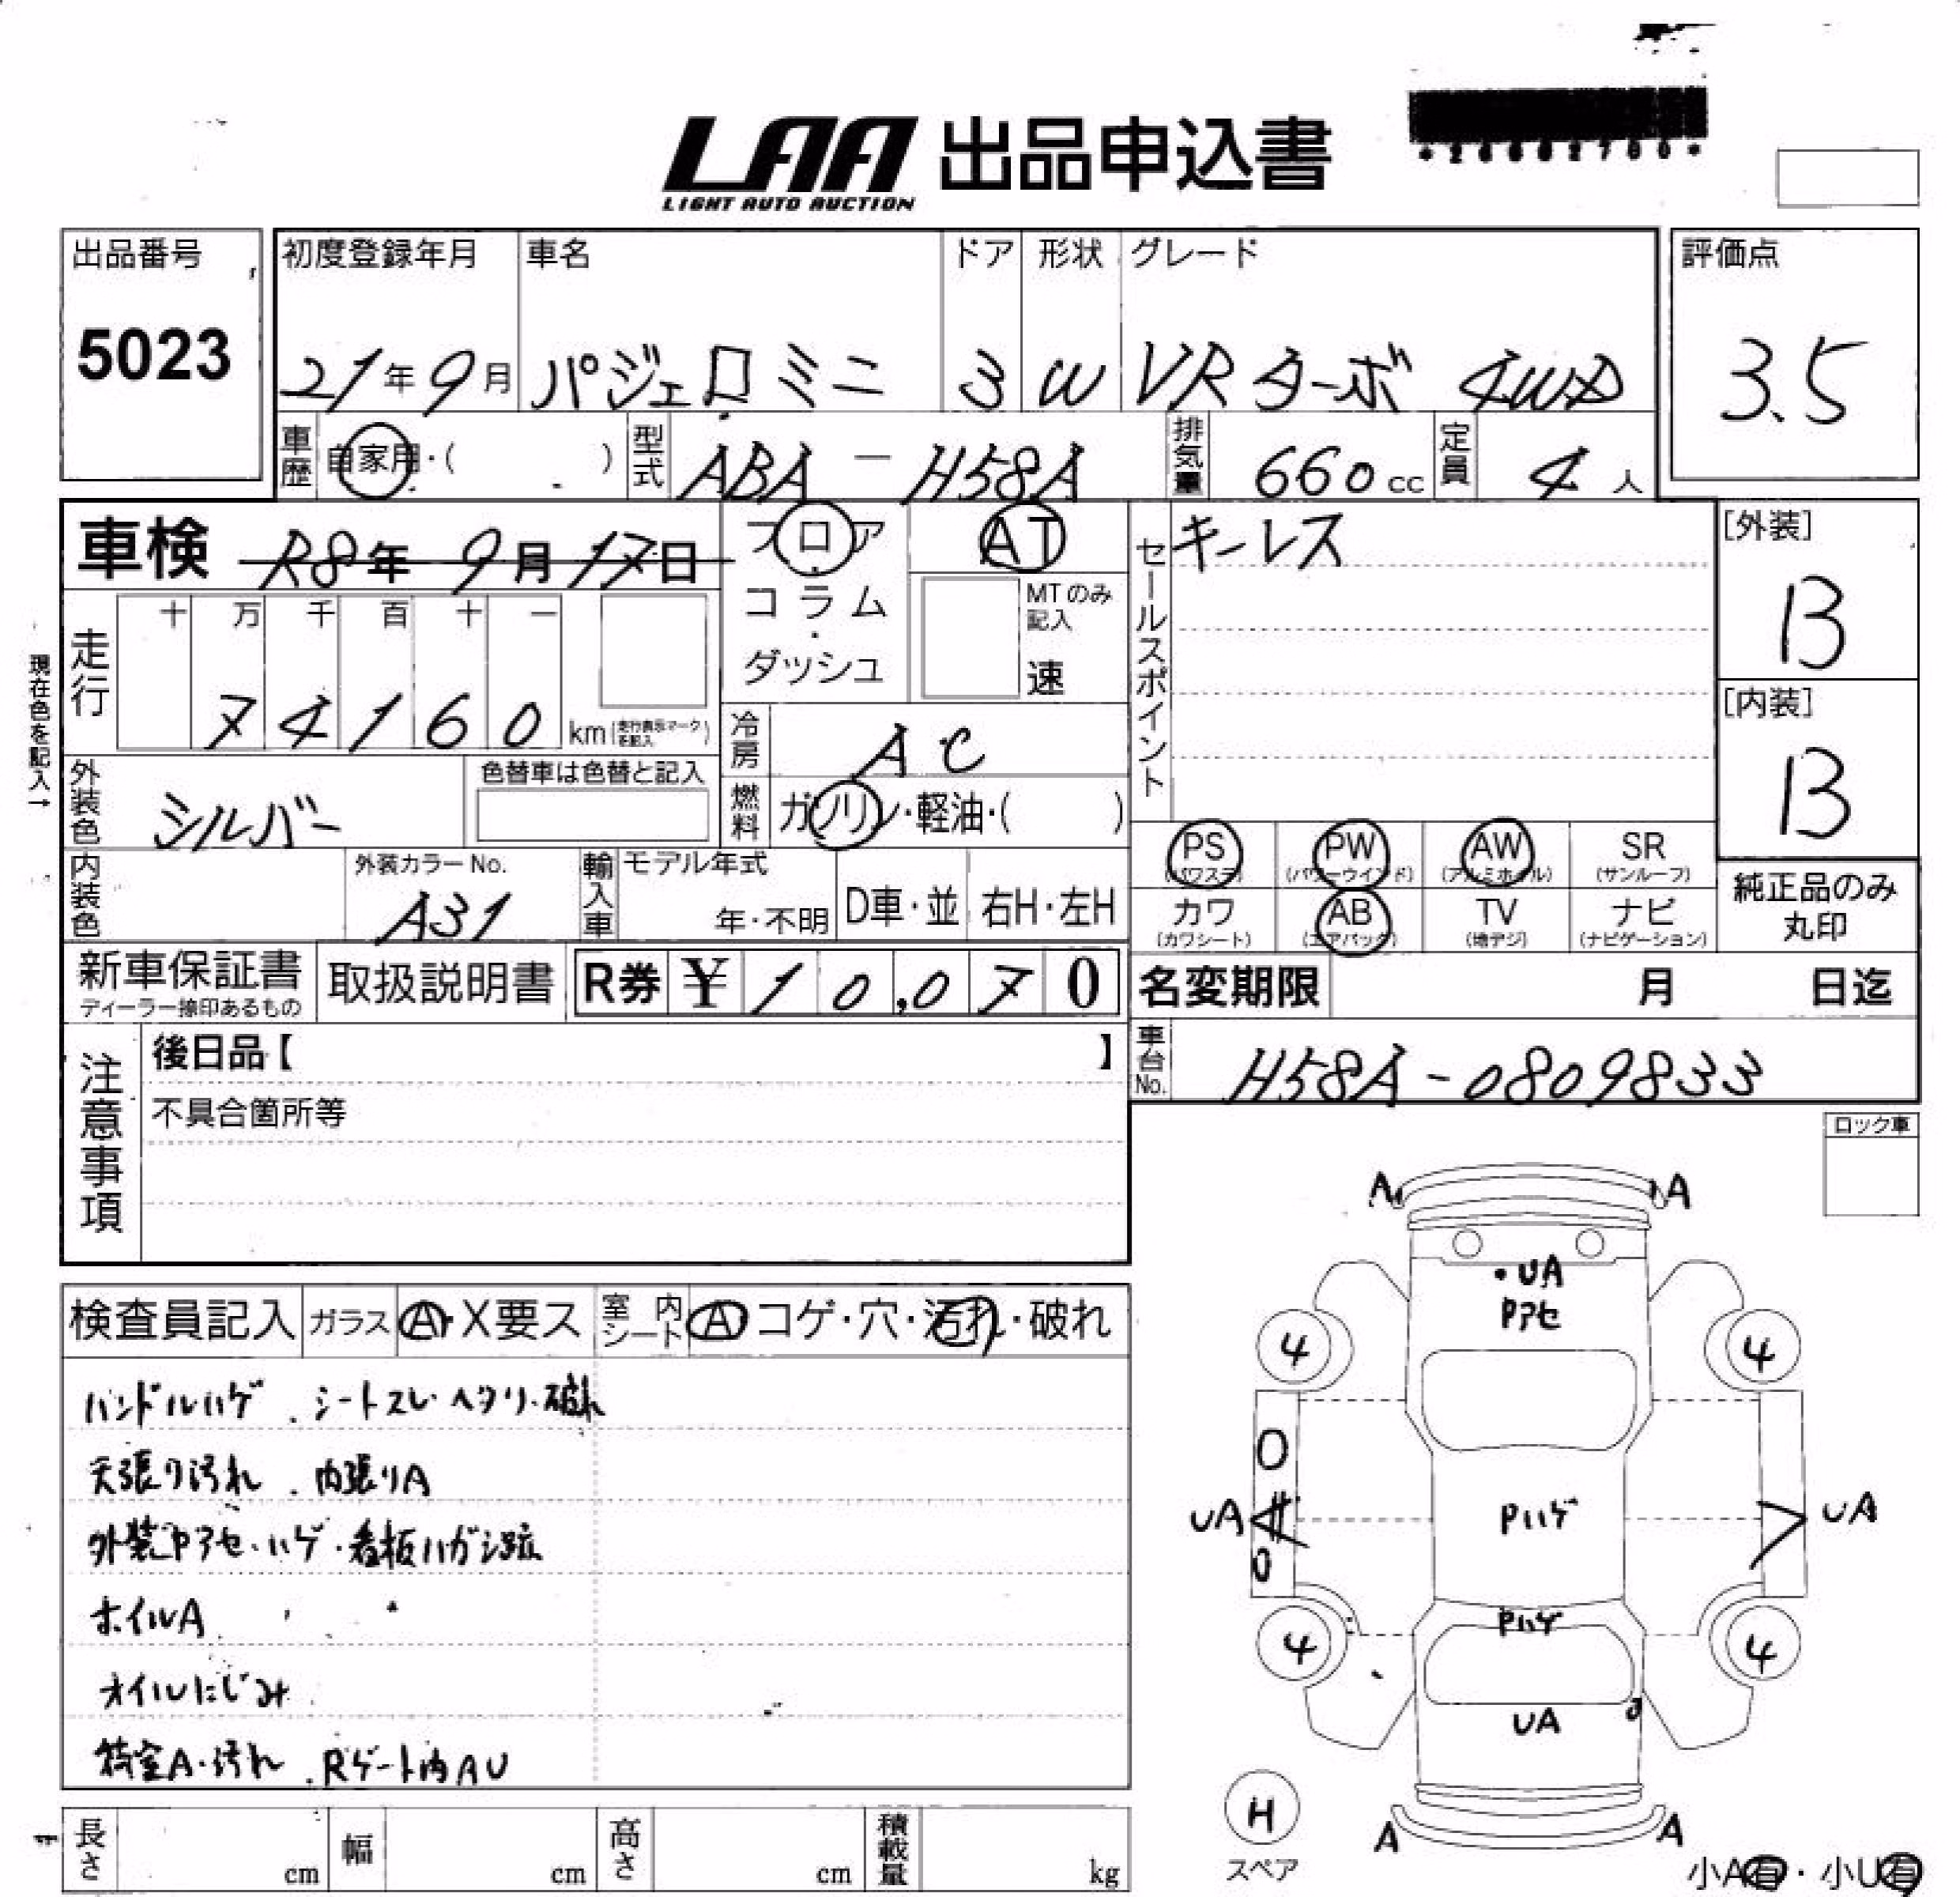 LAA 出品申込書
LIGHT AUTO AUCTION
出品番号
5023
初度登録年月 車名 ドア 形状 グレード
21年9月 パジェロミニ 3 W VRターボ 4WD
評価点
3.5
車歴 自家用・( ) 型式 ABA-H58A 排気量 660cc 定員 4人
車検 R8年9月17日
フロア
コラム
ダッシュ
AT
MTのみ記入
速
セールスポイント
キーレス
[外装]
B
[内装]
B
現在色を記入→
走行 十 万 千 百 十 一
74160 km (走行表示マークを記入)
冷房 AC
燃料 ガソリン・軽油・( )
外装色 シルバー 色替車は色替と記入
内装色 外装カラーNo. A31
輸入車 モデル年式 年・不明 D車・並 右H・左H
PS (パワステ) PW (パワーウインド) AW (アルミホイル) SR (サンルーフ)
カワ (カワシート) AB (エアバック) TV (地デジ) ナビ (ナビゲーション)
純正品のみ
丸印
新車保証書
ディーラー捺印あるもの
取扱説明書 R券 ¥10,070
名変期限 月 日迄
車台No. H58A-0809833
注意事項
後日品【 】
不具合箇所等
ロック車
検査員記入 ガラス A・X要ス 室内シート A コゲ・穴・汚れ・破れ
ハンドルハゲ.シートスレ・ヘタリ・破れ
天張り汚れ.内張りA
外装Pアセ・ハゲ・看板ハガシ跡
ホイルA
オイルにじみ
荷室A・汚れ.Rゲート内AU
A A
・UA
Pアセ
4 4
UA Pハゲ UA
Pハゲ
4 4
UA
H
スペア
A A
小A有・小U有
長さ cm 幅 cm 高さ cm 積載量 kg